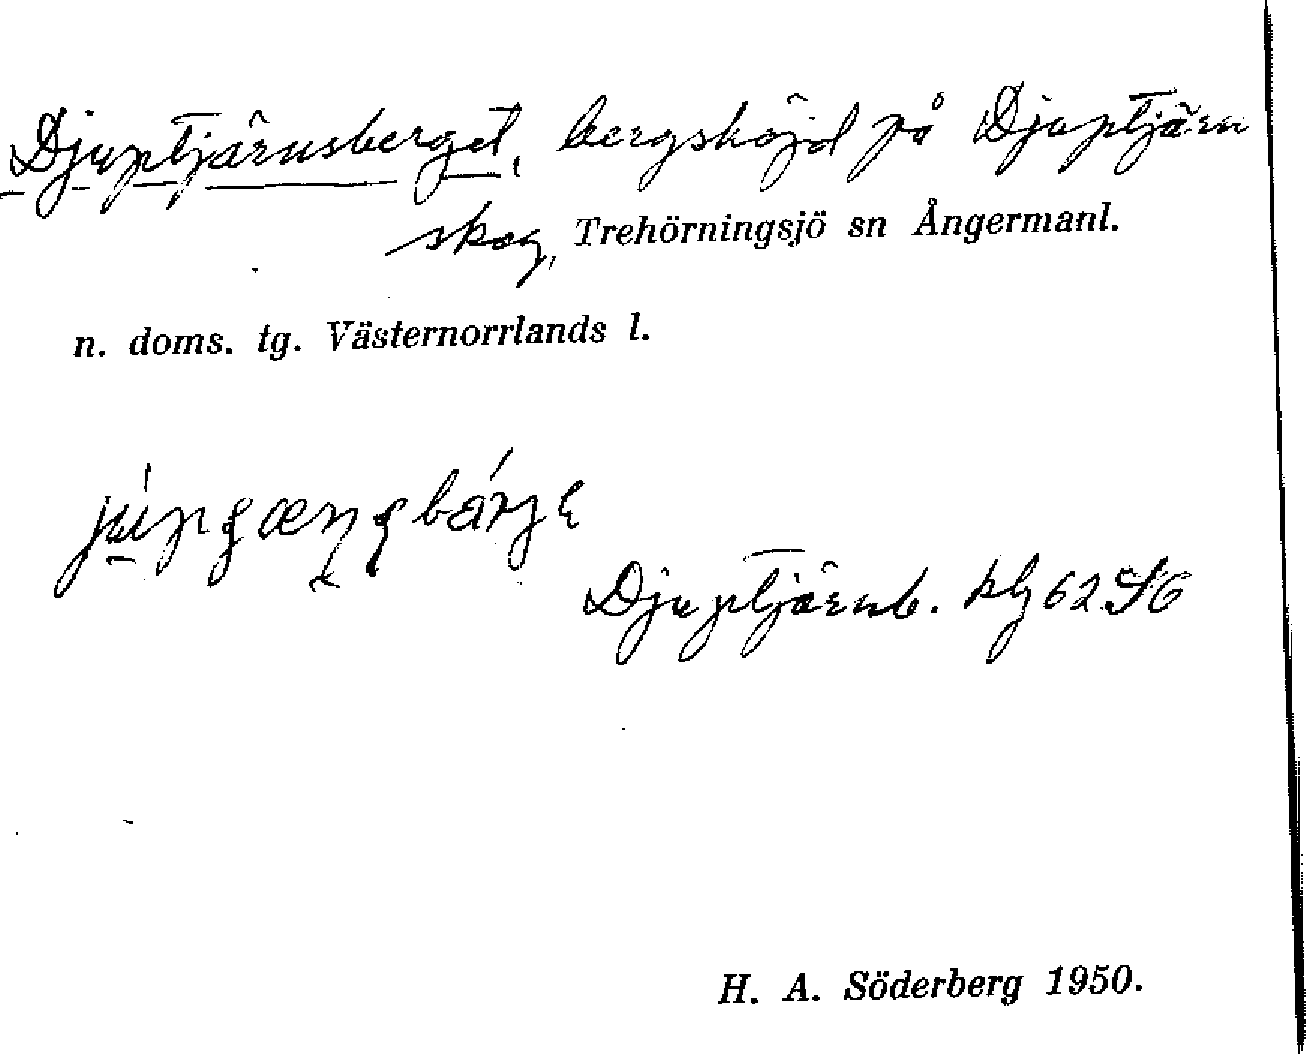 Djuptjärnsberget, bergshöjd på Djuptjärn
skog, Trehörningsjö sn Ångermanl.
n. doms. tg. Västernorrlands l.
Djuptjärnb. kbl 62 S6
H. A. Söderberg 1950.